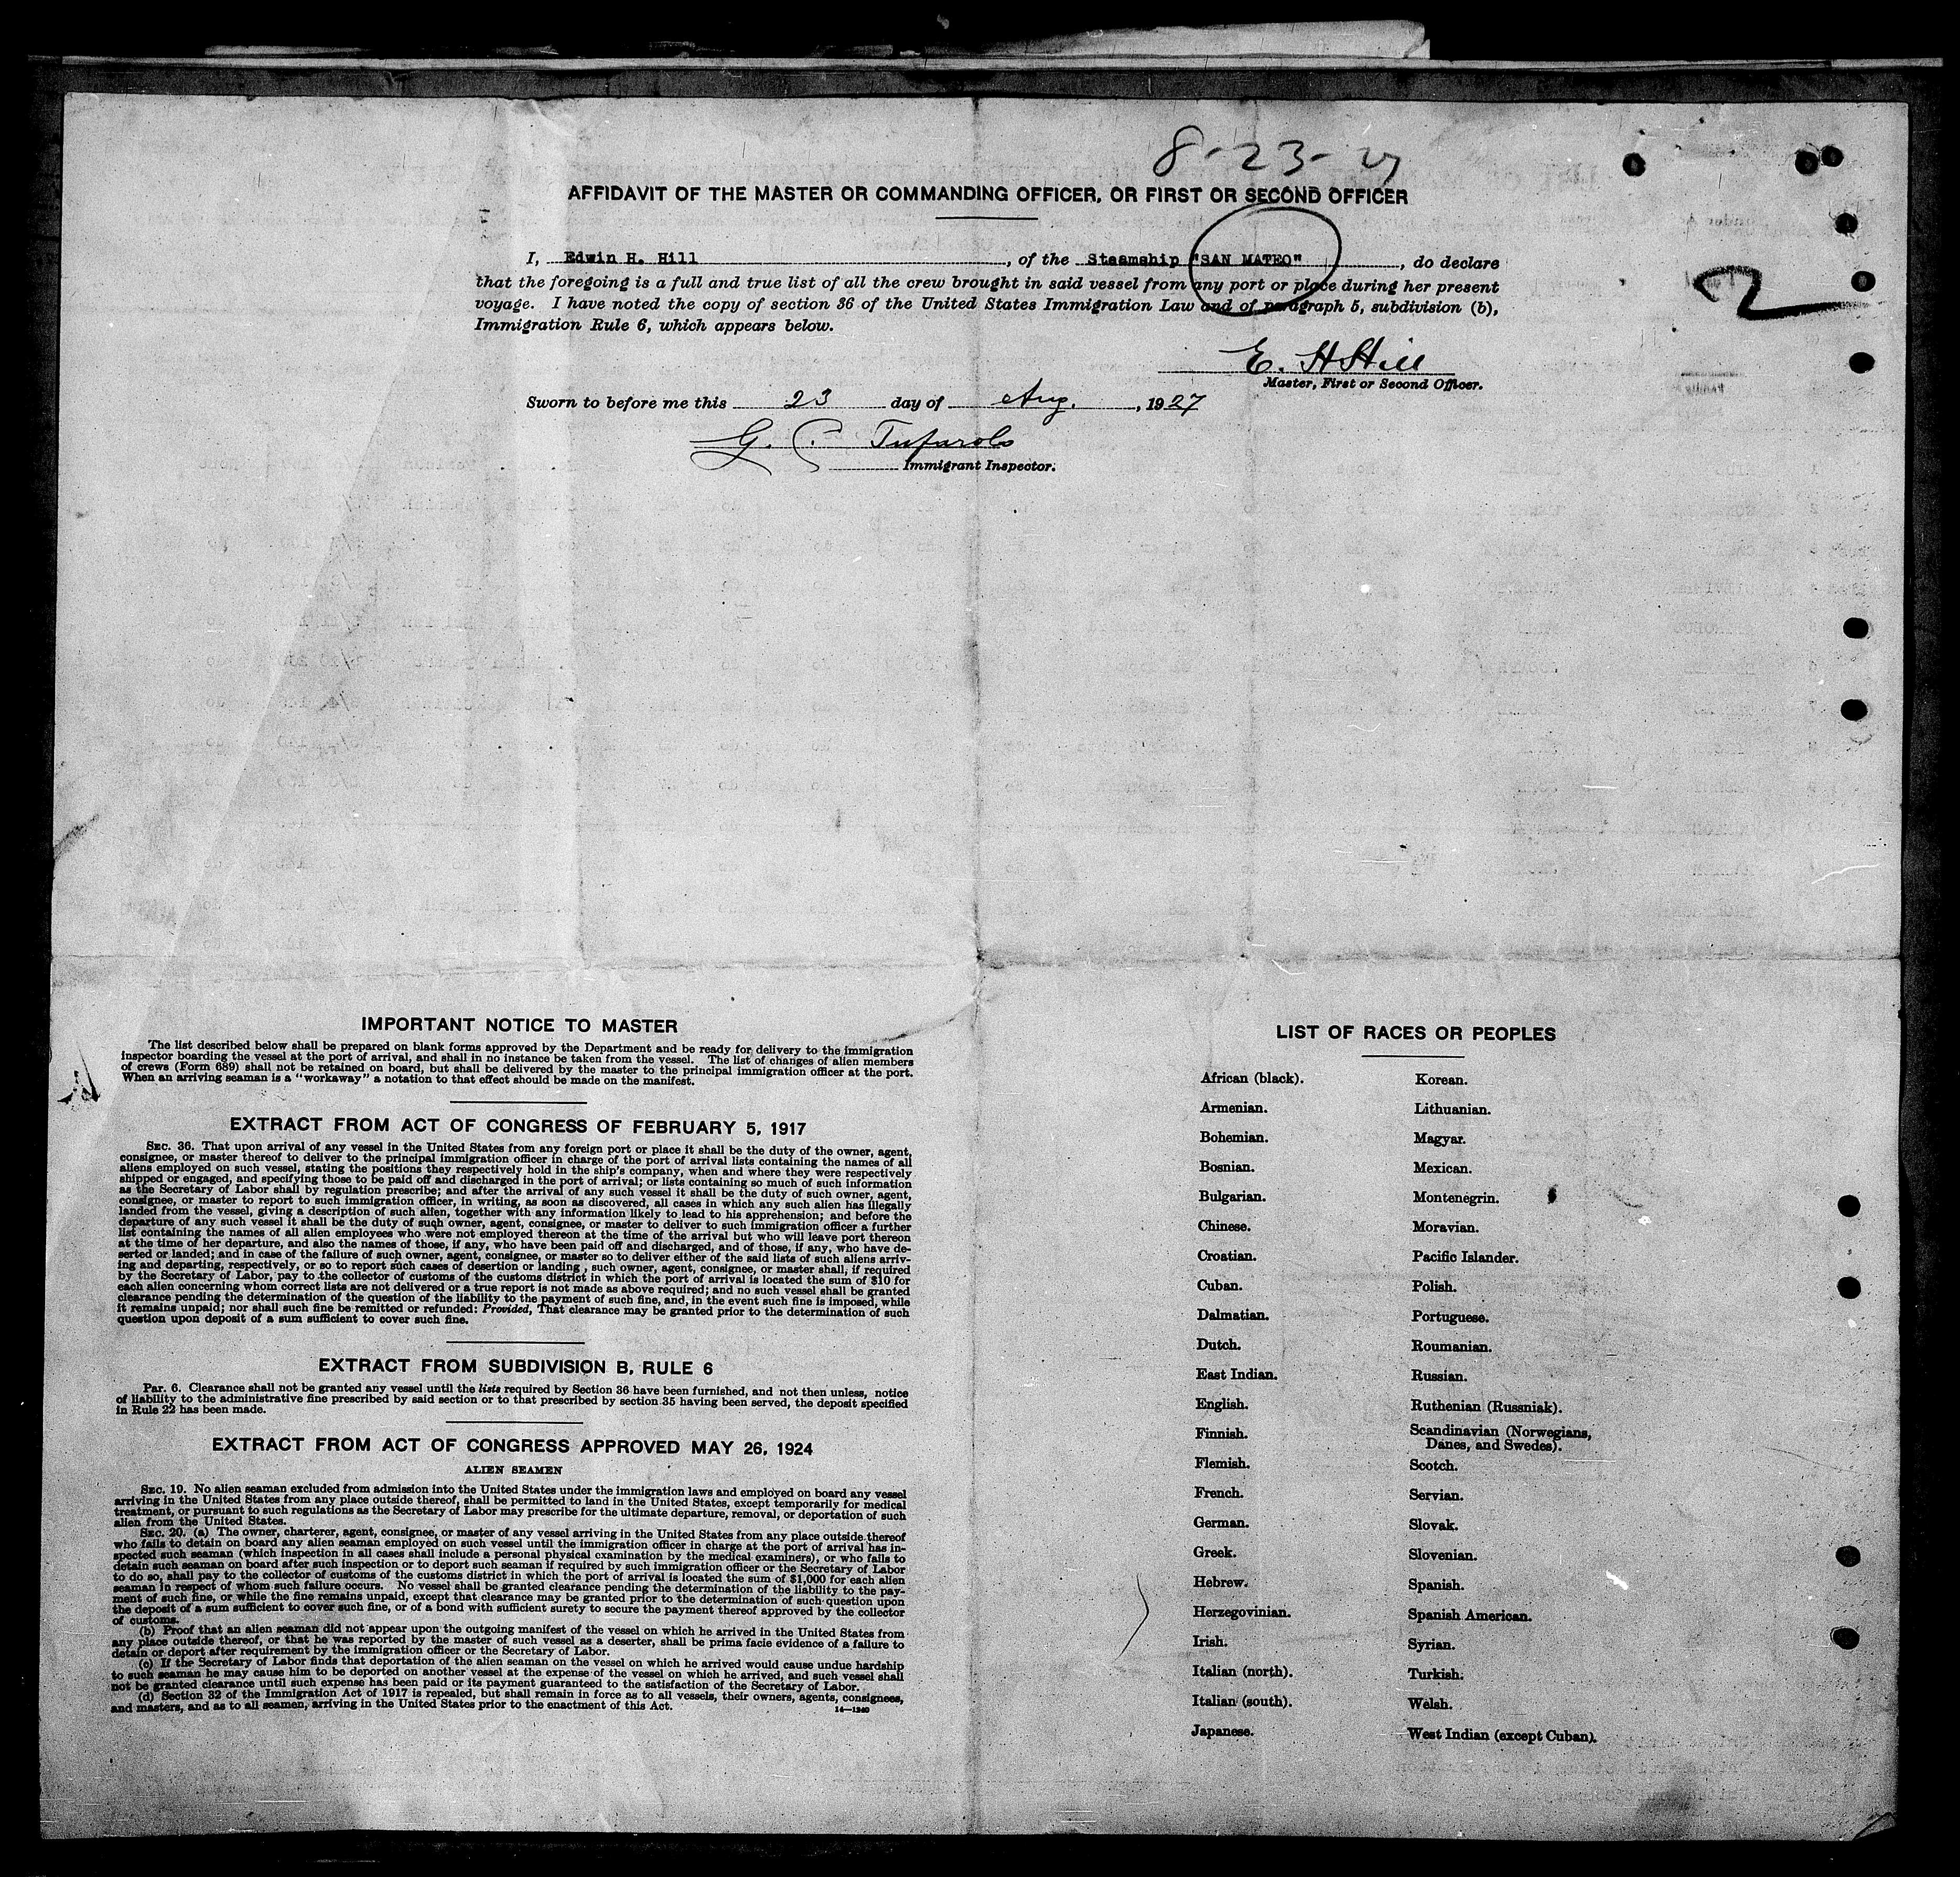 8-23-27
AFFIDAVIT OF THE MASTER OR COMMANDING OFFICER, OR FIRST OR SECOND OFFICER
I, Edwin H. Hill, of the Steamship "SAN MATEO", do declare
that the foregoing is a full and true list of all the crew brought in said vessel from any port or place during her present
voyage. I have noted the copy of section 36 of the United States Immigration Law and of paragraph 5, subdivision (b),
Immigration Rule 6, which appears below.
2
E. H Hill
Master, First or Second Officer.
Sworn to before me this 23 day of Aug., 1927
G. C. Tufarolo
Immigrant Inspector.
IMPORTANT NOTICE TO MASTER
The list described below shall be prepared on blank forms approved by the Department and be ready for delivery to the immigration
inspector boarding the vessel at the port of arrival, and shall in no instance be taken from the vessel. The list of changes of alien members
of crews (Form 689) shall not be retained on board, but shall be delivered by the master to the principal immigration officer at the port.
When an arriving seaman is a "workaway" a notation to that effect should be made on the manifest.
EXTRACT FROM ACT OF CONGRESS OF FEBRUARY 5, 1917
SEC. 36. That upon arrival of any vessel in the United States from any foreign port or place it shall be the duty of the owner, agent,
consignee, or master thereof to deliver to the principal immigration officer in charge of the port of arrival lists containing the names of all
aliens employed on such vessel, stating the positions they respectively hold in the ship's company, when and where they were respectively
shipped or engaged, and specifying those to be paid off and discharged in the port of arrival; or lists containing so much of such information
as the Secretary of Labor shall by regulation prescribe; and after the arrival of any such vessel it shall be the duty of such owner, agent,
consignee, or master to report to such immigration officer, in writing, as soon as discovered, all cases in which any such alien has illegally
landed from the vessel, giving a description of such alien, together with any information likely to lead to his apprehension; and before the
departure of any such vessel it shall be the duty of such owner, agent, consignee, or master to deliver to such immigration officer a further
list containing the names of all alien employees who were not employed thereon at the time of the arrival but who will leave port thereon
at the time of her departure, and also the names of those, if any, who have been paid off and discharged, and of those, if any, who have de-
serted or landed; and in case of the failure of such owner, agent, consignee, or master so to deliver either of the said lists of such aliens arriv-
ing and departing, respectively, or so to report such cases of desertion or landing, such owner, agent, consignee, or master shall, if required
by the Secretary of Labor, pay to the collector of customs of the customs district in which the port of arrival is located the sum of $10 for
each alien concerning whom correct lists are not delivered or a true report is not made as above required; and no such vessel shall be granted
clearance pending the determination of the question of the liability to the payment of such fine, and, in the event such fine is imposed, while
it remains unpaid; nor shall such fine be remitted or refunded: Provided, That clearance may be granted prior to the determination of such
question upon deposit of a sum sufficient to cover such fine.
EXTRACT FROM SUBDIVISION B, RULE 6
PAR. 6. Clearance shall not be granted any vessel until the lists required by Section 36 have been furnished, and not then unless, notice
of liability to the administrative fine prescribed by said section or to that prescribed by section 35 having been served, the deposit specified
in Rule 22 has been made.
EXTRACT FROM ACT OF CONGRESS APPROVED MAY 26, 1924
ALIEN SEAMEN
SEC. 19. No alien seaman excluded from admission into the United States under the immigration laws and employed on board any vessel
arriving in the United States from any place outside thereof, shall be permitted to land in the United States, except temporarily for medical
treatment, or pursuant to such regulations as the Secretary of Labor may prescribe for the ultimate departure, removal, or deportation of such
alien from the United States.
SEC. 20. (a) The owner, charterer, agent, consignee, or master of any vessel arriving in the United States from any place outside thereof
who fails to detain on board any alien seaman employed on such vessel until the immigration officer in charge at the port of arrival has in-
spected such seaman (which inspection in all cases shall include a personal physical examination by the medical examiners), or who fails to
detain such seaman on board after such inspection or to deport such seaman if required by such immigration officer or the Secretary of Labor
to do so, shall pay to the collector of customs of the customs district in which the port of arrival is located the sum of $1,000 for each alien
seaman in respect of whom such failure occurs. No vessel shall be granted clearance pending the determination of the liability to the pay-
ment of such fine, or while the fine remains unpaid, except that clearance may be granted prior to the determination of such question upon
the deposit of a sum sufficient to cover such fine, or of a bond with sufficient surety to secure the payment thereof approved by the collector
of customs.
(b) Proof that an alien seaman did not appear upon the outgoing manifest of the vessel on which he arrived in the United States from
any place outside thereof, or that he was reported by the master of such vessel as a deserter, shall be prima facie evidence of a failure to
detain or deport after requirement by the immigration officer or the Secretary of Labor.
(c) If the Secretary of Labor finds that deportation of the alien seaman on the vessel on which he arrived would cause undue hardship
to such seaman he may cause him to be deported on another vessel at the expense of the vessel on which he arrived, and such vessel shall
not be granted clearance until such expense has been paid or its payment guaranteed to the satisfaction of the Secretary of Labor.
(d) Section 32 of the Immigration Act of 1917 is repealed, but shall remain in force as to all vessels, their owners, agents, consignees,
and masters, and as to all seamen, arriving in the United States prior to the enactment of this Act.
14—1240
LIST OF RACES OR PEOPLES
African (black).
Armenian.
Bohemian.
Bosnian.
Bulgarian.
Chinese.
Croatian.
Cuban.
Dalmatian.
Dutch.
East Indian.
English.
Finnish.
Flemish.
French.
German.
Greek.
Hebrew.
Herzegovinian.
Irish.
Italian (north).
Italian (south).
Japanese.
Korean.
Lithuanian.
Magyar.
Mexican.
Montenegrin.
Moravian.
Pacific Islander.
Polish.
Portuguese.
Roumanian.
Russian.
Ruthenian (Russniak).
Scandinavian (Norwegians,
Danes, and Swedes).
Scotch.
Servian.
Slovak.
Slovenian.
Spanish.
Spanish American.
Syrian.
Turkish.
Welsh.
West Indian (except Cuban).